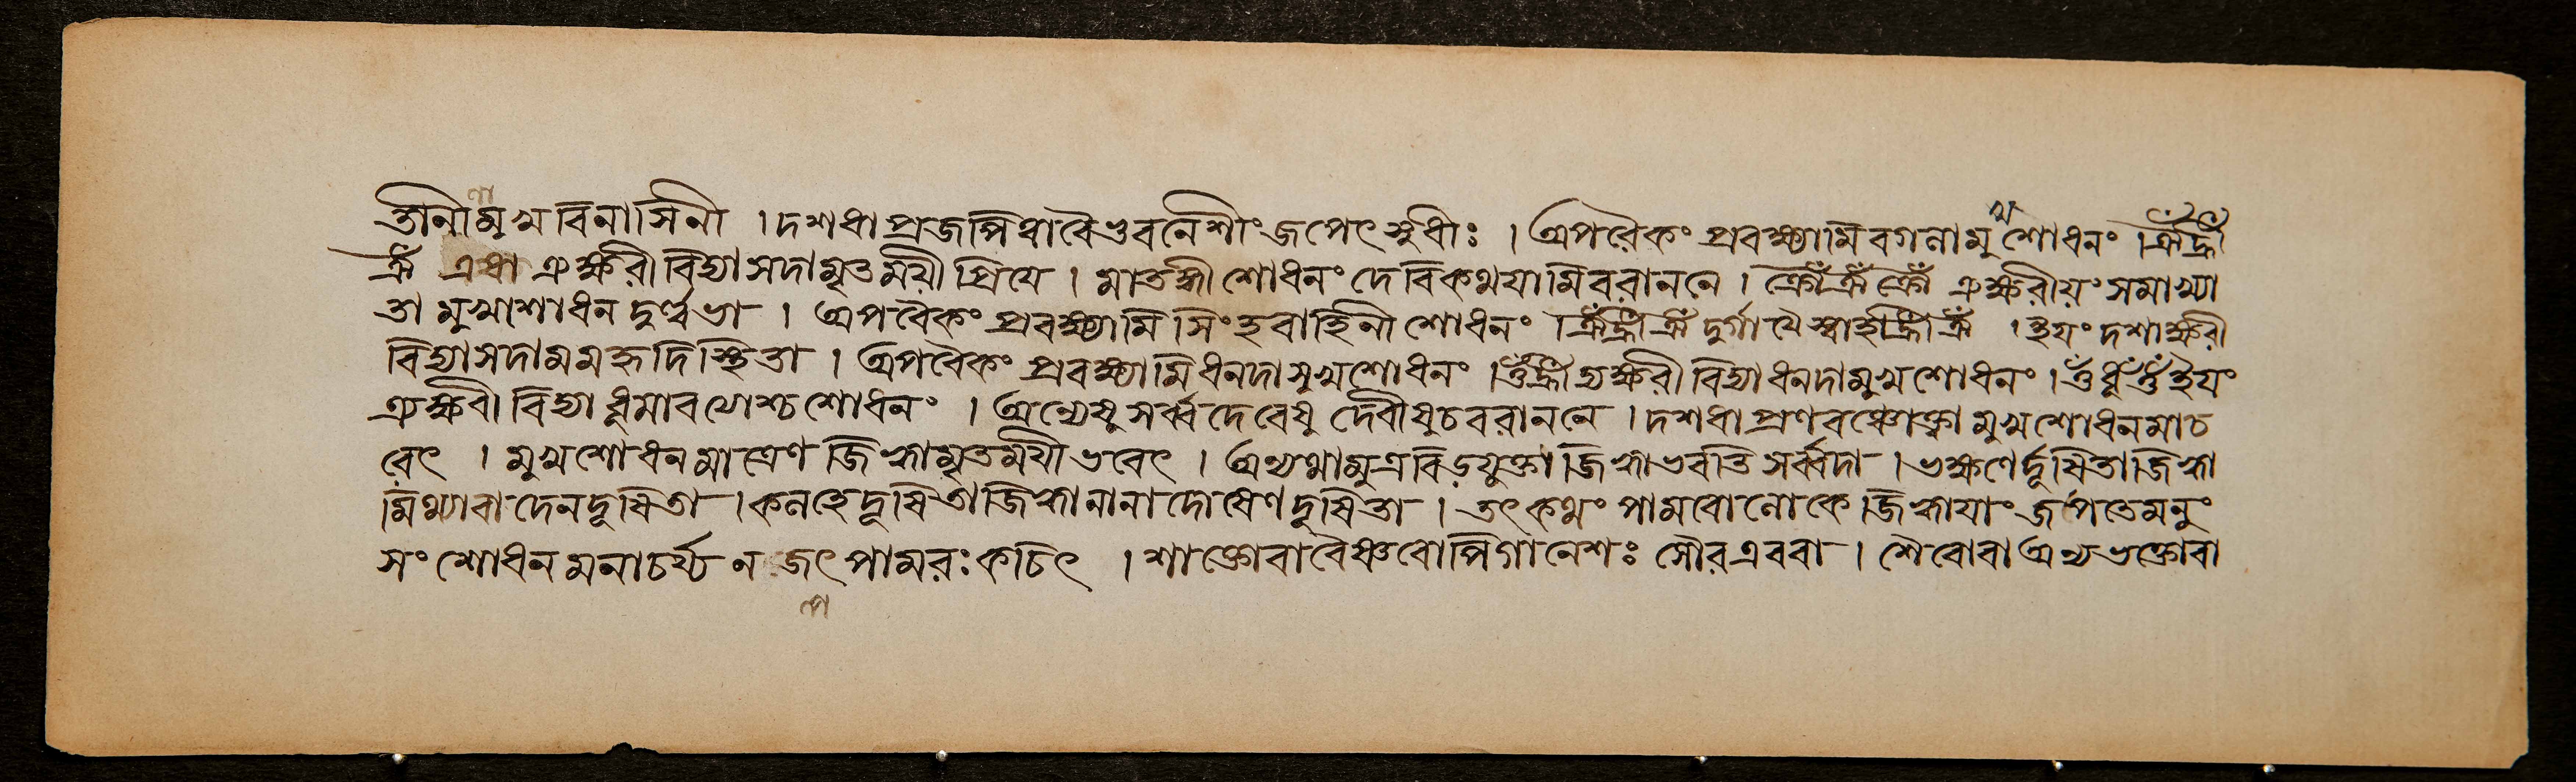 ত্তানী মুখ বিনাসিনী । দশধা প্রজপিত্বা বৈ ভুবনেশীং জপেৎ সুধীঃ । অপরৈকং প্রবক্ষ্যামি বগলামুখশোধনং । ঐঁ হ্রীঁ
ঐঁ এষা ত্র্যক্ষরী বিদ্যা সদামৃতময়ী প্রিযে । মাতঙ্গী শোধনং দেবি কথযামি বরাননে । ক্রোঁ ঐঁ ক্রোঁ ত্র্যক্ষরীয়ং সমাখ্যা
তা মুখশোধন দুর্ল্লভা । অপরৈকং প্রবক্ষ্যামি সিংহবাহিনী শোধনং । ঐঁ হ্রীঁ ঐঁ দুর্গাযৈ স্বাহা হ্রীঁ ঐঁ । ইযং দশাক্ষরী
বিদ্যা সদা মম হৃদিস্থিতা । অপরৈকং প্রবক্ষ্যামি ধনদামুখশোধনং । হ্রীঁ দ্ব্যক্ষরী বিদ্যা ধনদামুখশোধনং । ধূঁ ইযং
ত্র্যক্ষরী বিদ্যা ধূমাবত্যাশ্চ শোধনং । অন্যেষু সর্ব্ব দেবেষু দেবীষু চ বরাননে । দশধা প্রণবঞ্চোক্ত্বা মুখশোধনমাচ
রেৎ । মুখশোধনমাত্রেণ জিহ্বামৃতময়ী ভবেৎ । অন্যথা মুত্রবিড়্যুক্তা জিহ্বা ভবতি সর্ব্বদা । ভক্ষণে র্দূষিতা জিহ্বা
মিথ্যাবাদেন দূষিতা । কলহে দূষিতা জিহ্বা নানা দোষেণ দুষিতা । তৎ কথং পামরো লোকে জিহ্বাযাং জপতে মনুং
সংশোধনমনাচর্য্য ন জপেৎ পামরঃ কচিৎ । শাক্তো বা বৈষ্ণবোপি গানেশঃ সৌর এব বা । শৈবো বা অন্যভক্তো বা